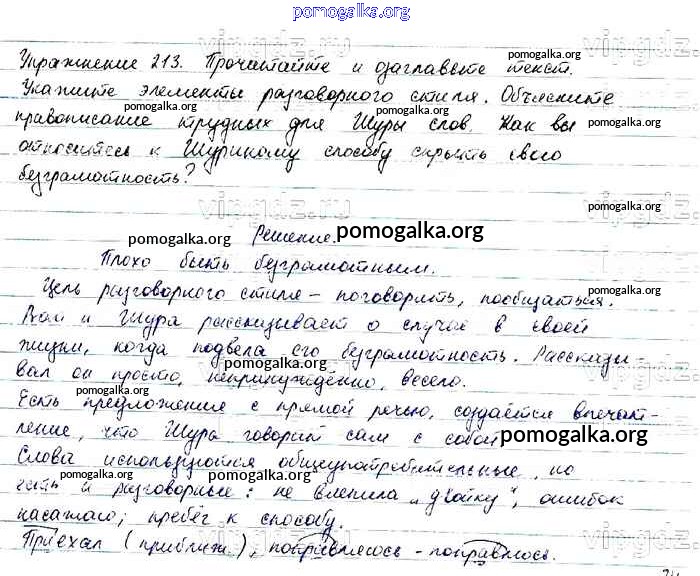 pomogalka.org
Упражнение 213. Прочитайте и озаглавьте текст.
pomogalka.org
Укажите элементы разговорного стиля. Объясните
pomogalka.org
правописание трудных для Шуры слов. Как вы
pomogalka.org
относитесь к Шуриному способу скрыть свою
безграмотность?
pomogalka.org
vipgdz.ru
Решение.
pomogalka.org
pomogalka.org
Плохо быть безграмотным.
Цель разговорного стиля – поговорить, пообщаться.
pomogalka.org
Вот и Шура рассказывает о случае в своей
pomogalka.org
жизни, когда подвела его безграмотность. Рассказы-
вал он просто, непринуждённо, весело.
pomogalka.org
pomogalka.org
Есть предложение с прямой речью, создаётся впечат-
pomogalka.org
ление, что Шура говорит сам с собой
pomogalka.org
Слова используются общеупотребительные, но
pomogalka.org
pomogalka.org
есть и разговорные: не влепила „двойку", ошибок
насажаю; пребег к способу.
pomogalka.org
pomogalka.org
Приехал (приближ.), поправляюсь – поправлюсь.